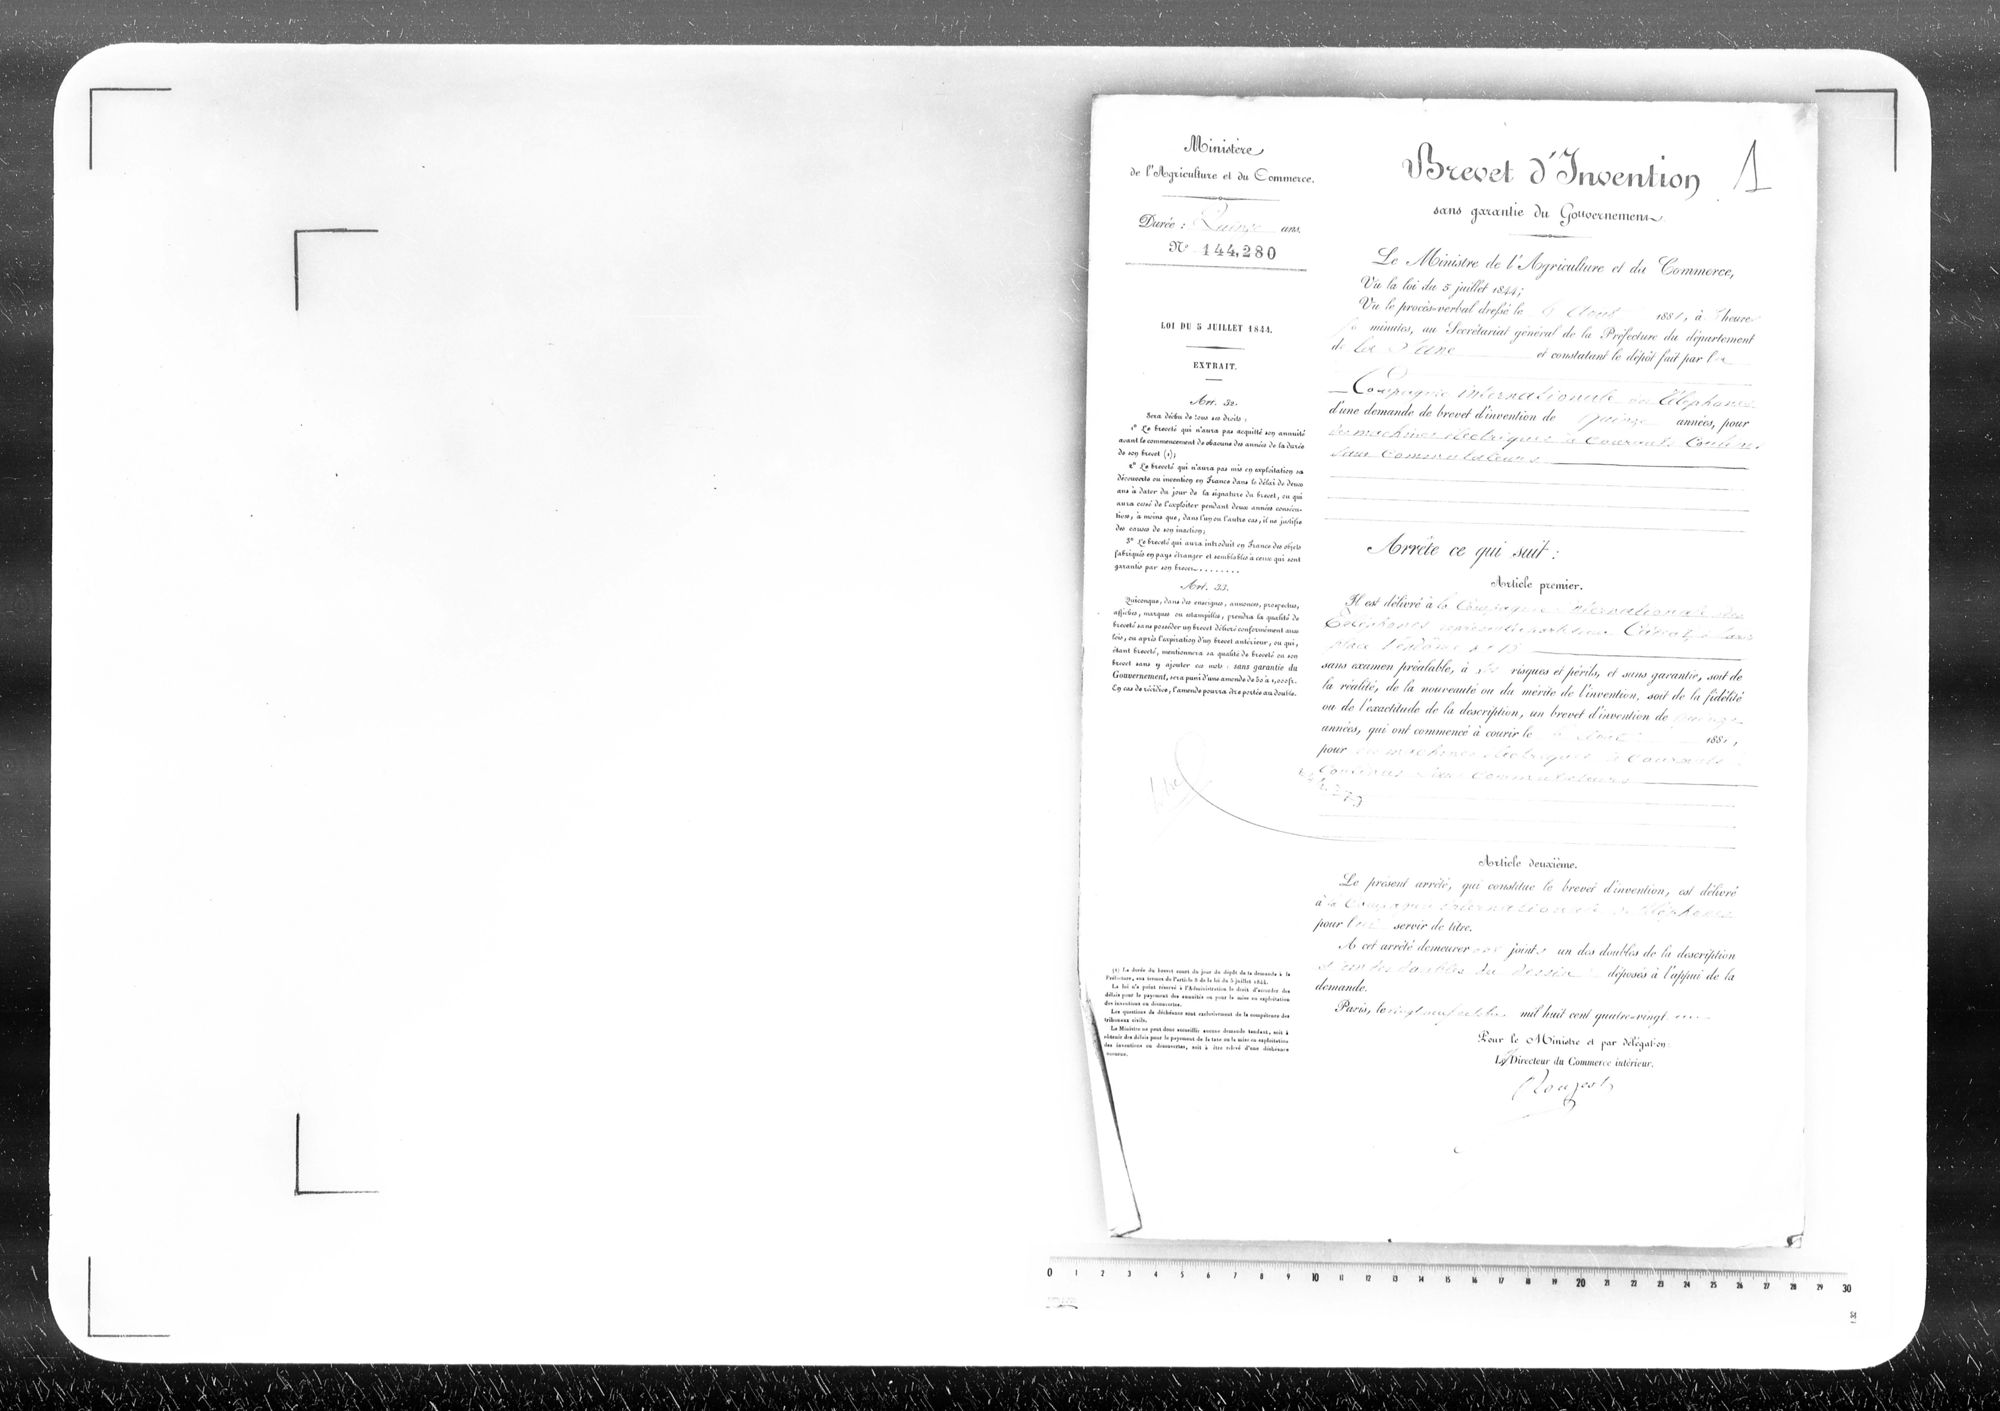 Ministère
de l'Agriculture et du Commerce.
Durée : Quinze ans.
N° 144,280
LOI DU 5 JUILLET 1844.
EXTRAIT.
Art. 32.
Sera déchu de tous ses droits :
1° Le breveté qui n'aura pas acquitté son annuité
avant le commencement de chacune des années de la durée
de son brevet (1);
2° Le breveté qui n'aura pas mis en exploitation sa
découverte ou invention en France dans le délai de deux
ans à dater du jour de la signature du brevet, ou qui
aura cessé de l'exploiter pendant deux années consécu-
tives, à moins que, dans l'un ou l'autre cas, il ne justifie
des causes de son inaction;
3° Le breveté qui aura introduit en France des objets
fabriqués en pays étranger et semblables à ceux qui sont
garantis par son brevet........
Art. 33.
Quiconque, dans des enseignes, annonces, prospectus,
affiches, marques ou estampilles, prendra la qualité de
breveté sans posséder un brevet délivré conformément aux
lois, ou après l'expiration d'un brevet antérieur, ou qui,
étant breveté, mentionnera sa qualité de breveté ou son
brevet sans y ajouter ces mots : sans garantie du
Gouvernement, sera puni d'une amende de 50 à 1,000 fr.
En cas de récidive, l'amende pourra être portée au double.
(1) La durée du brevet court du jour du dépôt de la demande à la
Préfecture, aux termes de l'article 8 de la loi du 5 juillet 1844.
La loi n'a point réservé à l'Administration le droit d'accorder des
délais pour le payement des annuités ou pour la mise en exploitation
des inventions ou découvertes.
Les questions de déchéance sont exclusivement de la compétence des
tribunaux civils.
Le Ministre ne peut donc accueillir aucune demande tendant, soit à
obtenir des délais pour le payement de la taxe ou la mise en exploitation
des inventions ou découvertes, soit à être relevé d'une déchéance
encourue.
Brevet d'Invention
1
sans garantie du Gouvernement.
Le Ministre de l'Agriculture et du Commerce,
Vu la loi du 5 juillet 1844;
Vu le procès-verbal dressé le Août 1881, à heures
minutes, au Secrétariat général de la Préfecture du département
de la Seine et constatant le dépôt fait par la
Compagnie internationale des Téléphones
d'une demande de brevet d'invention de quinze années, pour
des machines électriques à courants continus
sans commutateurs
Arrête ce qui suit :
Article premier.
Il est délivré à la Compagnie internationale des
Téléphones représentée par
place Vendôme
sans examen préalable, à ses risques et périls, et sans garantie, soit de
la réalité, de la nouveauté ou du mérite de l'invention, soit de la fidélité
ou de l'exactitude de la description, un brevet d'invention de quinze
années, qui ont commencé à courir le Août 1881,
pour des machines électriques à courants
continus sans commutateurs
Article deuxième.
Le présent arrêté, qui constitue le brevet d'invention, est délivré
à la Compagnie internationale des Téléphones
pour lui servir de titre.
A cet arrêté demeureront joints un des doubles de la description
et un des doubles du dessin déposés à l'appui de la
demande.
Paris, le vingt neuf octobre mil huit cent quatre-vingt un
Pour le Ministre et par délégation:
Le Directeur du Commerce intérieur.
0 1 2 3 4 5 6 7 8 9 10 11 12 13 14 15 16 17 18 19 20 21 22 23 24 25 26 27 28 29 30